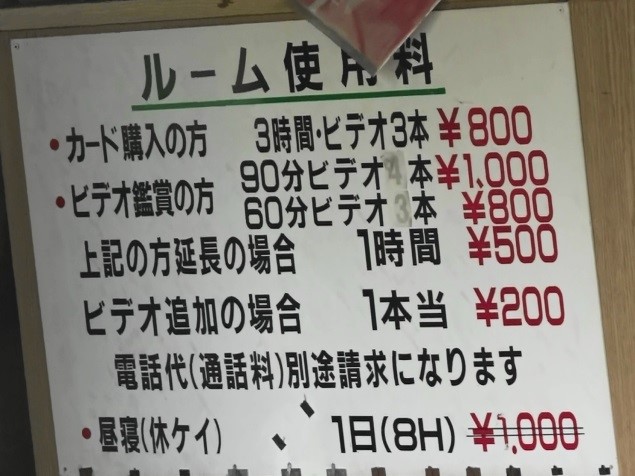 ルーム使用料
・カード購入の方 3時間・ビデオ3本 ¥800
・ビデオ鑑賞の方 90分ビデオ4本 ¥1,000
60分ビデオ3本 ¥800
上記の方延長の場合 1時間 ¥500
ビデオ追加の場合 1本当 ¥200
電話代(通話料)別途請求になります
・昼寝(休ケイ) 1日(8H) ¥1,000